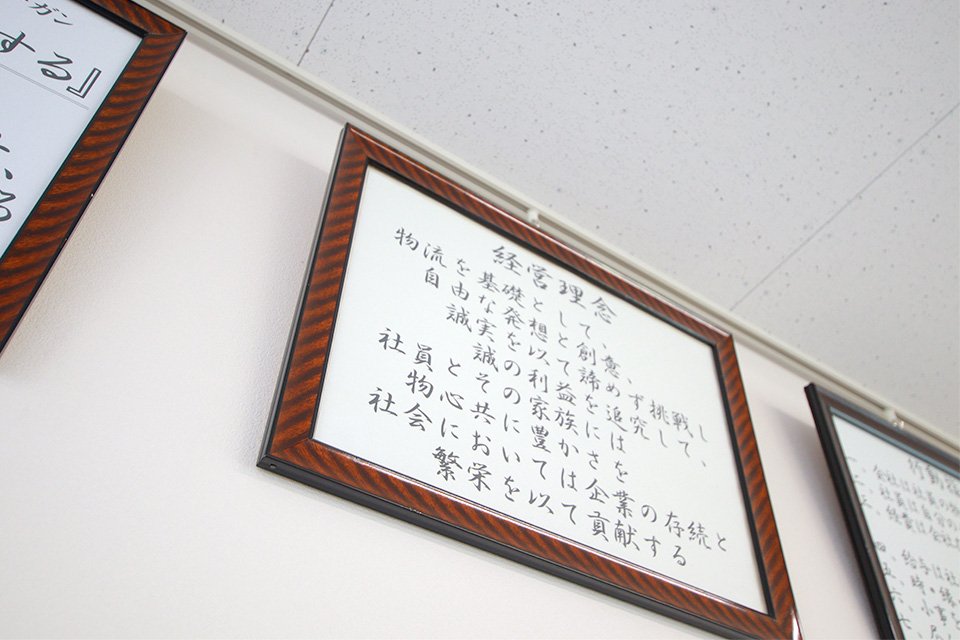 ガン
する』
経営理念
物流を基礎として、
自由な発想と創意、
誠実を以て諦めず挑戦し
誠の利益を追究して、
社員とその家族には
物心共に豊かさを
社会においては企業の存続と
繁栄を以て貢献する
行動
会社は社員の
社員は自分の
四、給与は社